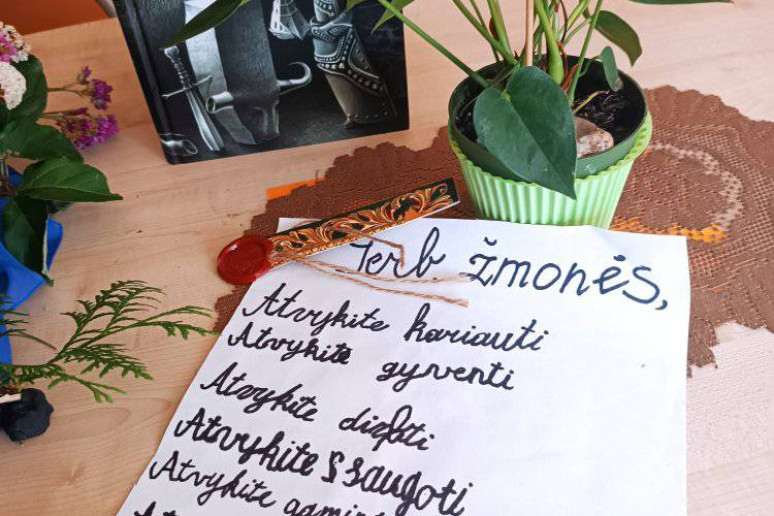 Gerb. žmonės,
Atvykite kariauti
Atvykite gyventi
Atvykite dirbti
Atvykite saugoti
Atvykite